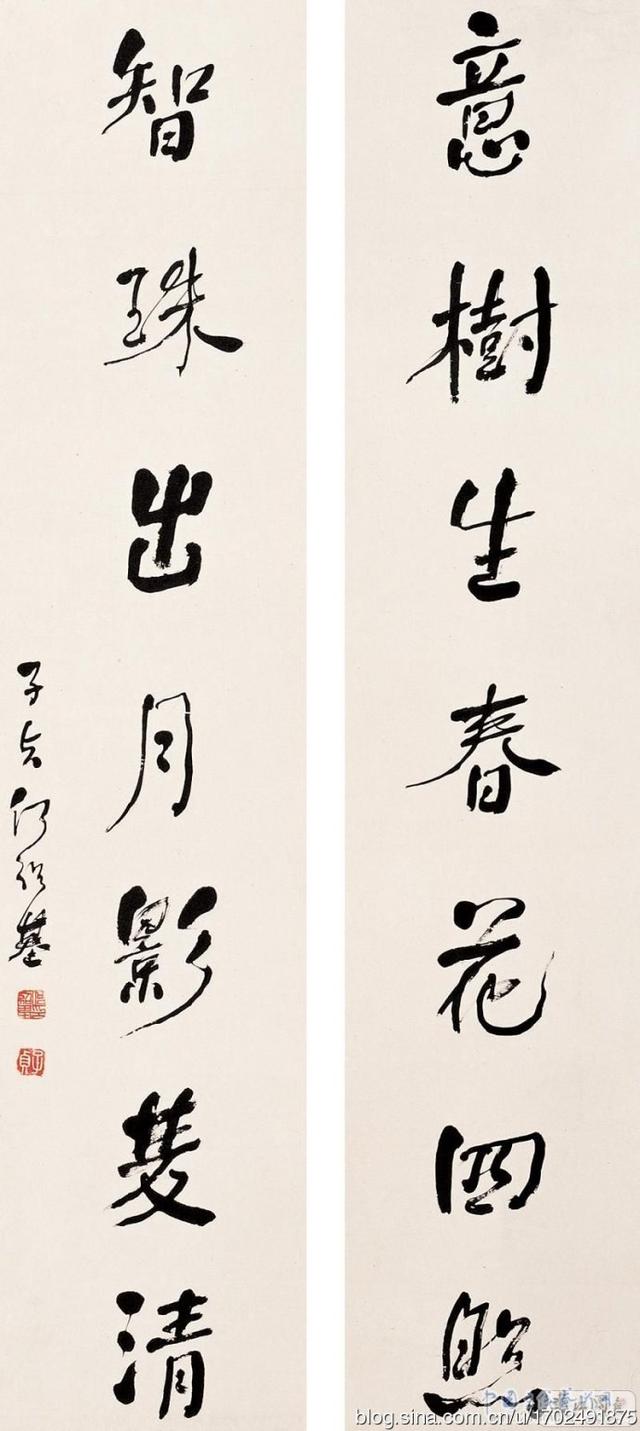 意樹生春花四照
智珠出月影雙清
子貞何紹基
子貞
blog.sina.com.cn/u/1702491875